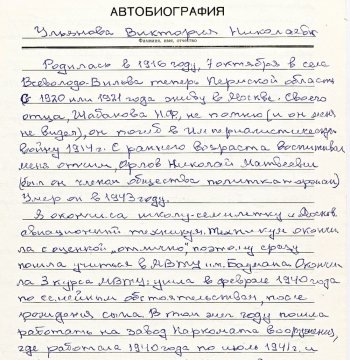 АВТОБИОГРАФИЯ
Ульянова Виктория Николаевна
Фамилия, имя, отчество
Родилась в 1916 году, 7 октября в селе
Всеволодо-Вильва теперь Пермской области
С 1920 или 1921 года живу в Москве. Своего
отца, Шабанова Н.Ф, не помню (и он меня
не видел), он погиб в Империалистическую
войну 1914 г. С раннего возраста воспитывал
меня отчим, Орлов Николай Матвеевич
(был он членом общества политкаторжан)
Умер он в 1943 году.
Я окончила школу-семилетку и Москов.
авиационный техникум. Техникум окончи
ла с оценкой „отлично", поэтому сразу
пошла учиться в МВТУ им. Баумана Окончи
ла 3 курса МВТУ: ушла в феврале 1940 года
по семейным обстоятельствам, после
рождения сына. В том же году пошла
работать на завод Наркомата вооружения,
где работала 1940 года по июль 1941 г. и